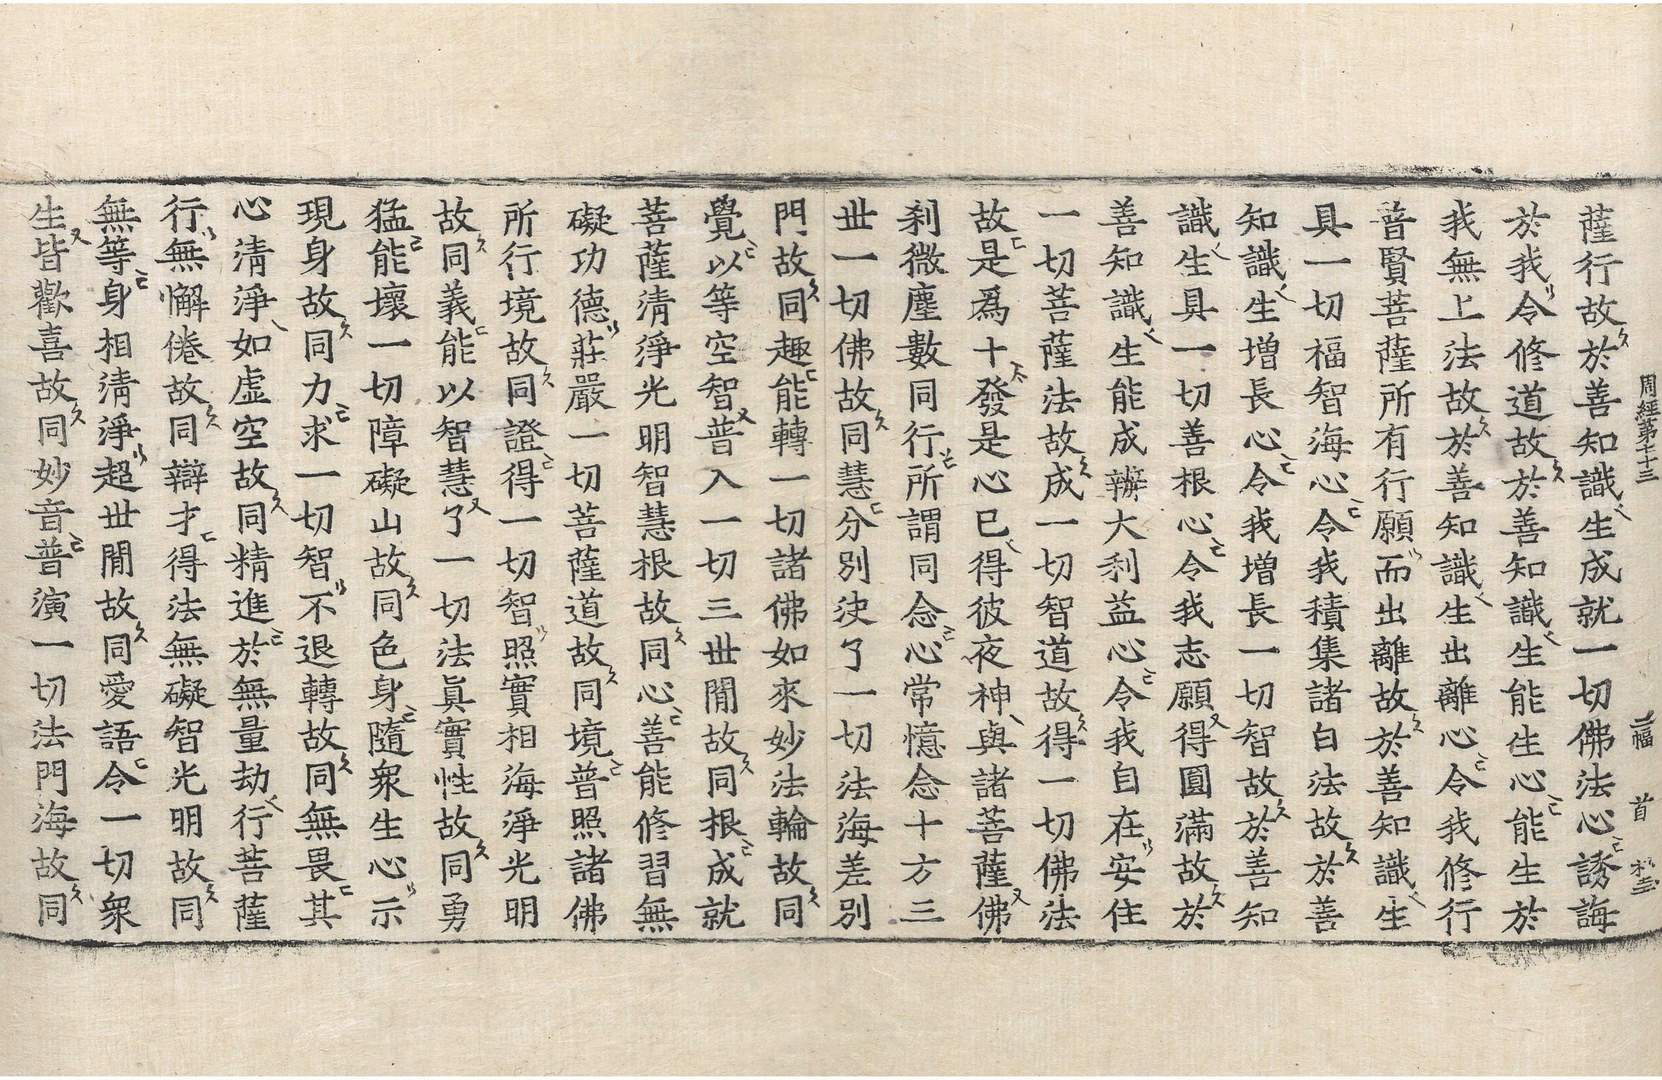 周經第七十三
二福
首
薩行故於善知識生成就一切佛法心誘誨
於我令修道故於善知識生能生心能生於
我無上法故於善知識生出離心令我修行
普賢菩薩所有行願而出離故於善知識生
具一切福智海心令我積集諸白法故於善
知識生增長心令我增長一切智故於善知
識生具一切善根心令我志願得圓滿故於
善知識生能成辦大利益心令我自在安住
一切菩薩法故成一切智道故得一切佛法
故是爲十發是心已得彼夜神與諸菩薩佛
剎微塵數同行所謂同念心常憶念十方三
世一切佛故同慧分別決了一切法海差別
門故同趣能轉一切諸佛如來妙法輪故同
覺以等空智普入一切三世閒故同根成就
菩薩清淨光明智慧根故同心善能修習無
礙功德莊嚴一切菩薩道故同境普照諸佛
所行境故同證得一切智照實相海淨光明
故同義能以智慧了一切法眞實性故同勇
猛能壞一切障礙山故同色身隨衆生心示
現身故同力求一切智不退轉故同無畏其
心清淨如虛空故同精進於無量劫行菩薩
行無懈倦故同辯才得法無礙智光明故同
無等身相清淨超世閒故同愛語令一切衆
生皆歡喜故同妙音普演一切法門海故同